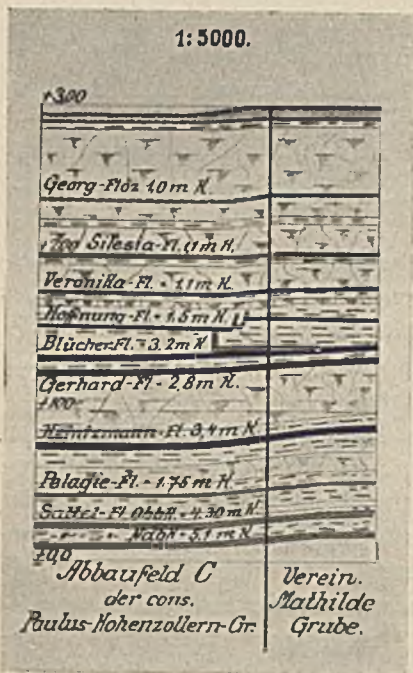 1:5000.
+300
Georg-Flöz 1,0 m K.
Silesia-Fl. 1,1 m K.
Veronika-Fl. - 1,1 m K.
Hoffnung-Fl. - 1,5 m K.
Blücher-Fl. - 3,2 m K.
Gerhard-Fl. - 2,8 m K.
+100
Heintzmann-Fl. 3,4 m K.
Pelagie-Fl. - 1.75 m K.
Sattel-Fl. Obbk. - 4.30 m K.
- 5,1 m K.
±0,0
Abbaufeld C
der cons.
Paulus-Hohenzollern-Gr.
Verein.
Mathilde
Grube.